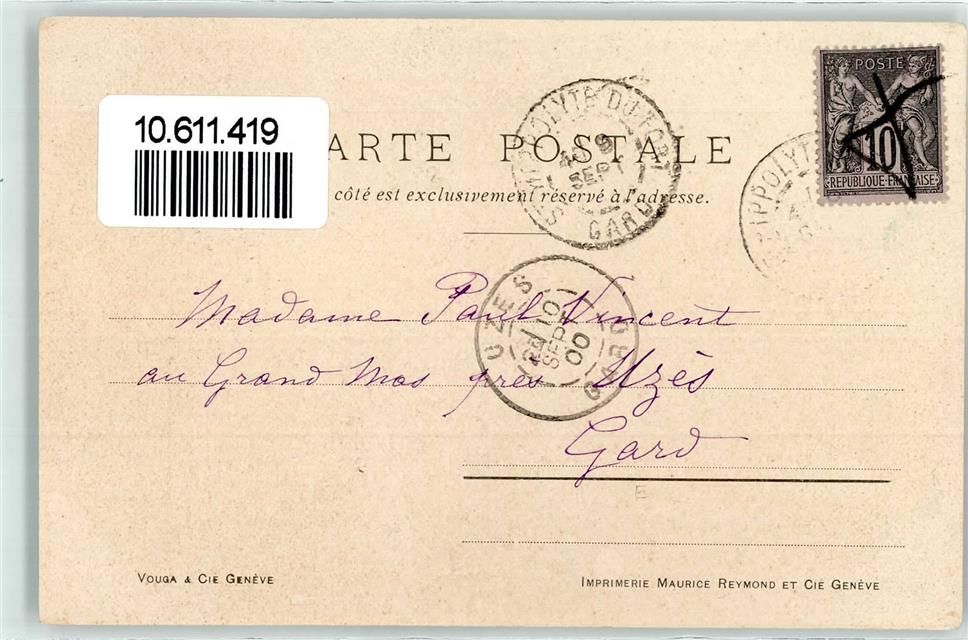 10.611.419
ARTE POSTALE
côté est exclusivement réservé à l'adresse.
POSTE
10
RÉPUBLIQUE FRANÇAISE
HIPPOLYTE DU FORT
9
SEPT
GARD
HIPPOLYTE
UZES
10
SEPT
00
GARD
Madame Paul Vincent
au Grand Mas près Uzès
Gard
E
VOUGA & CIE GENÈVE
IMPRIMERIE MAURICE REYMOND ET CIE GENÈVE